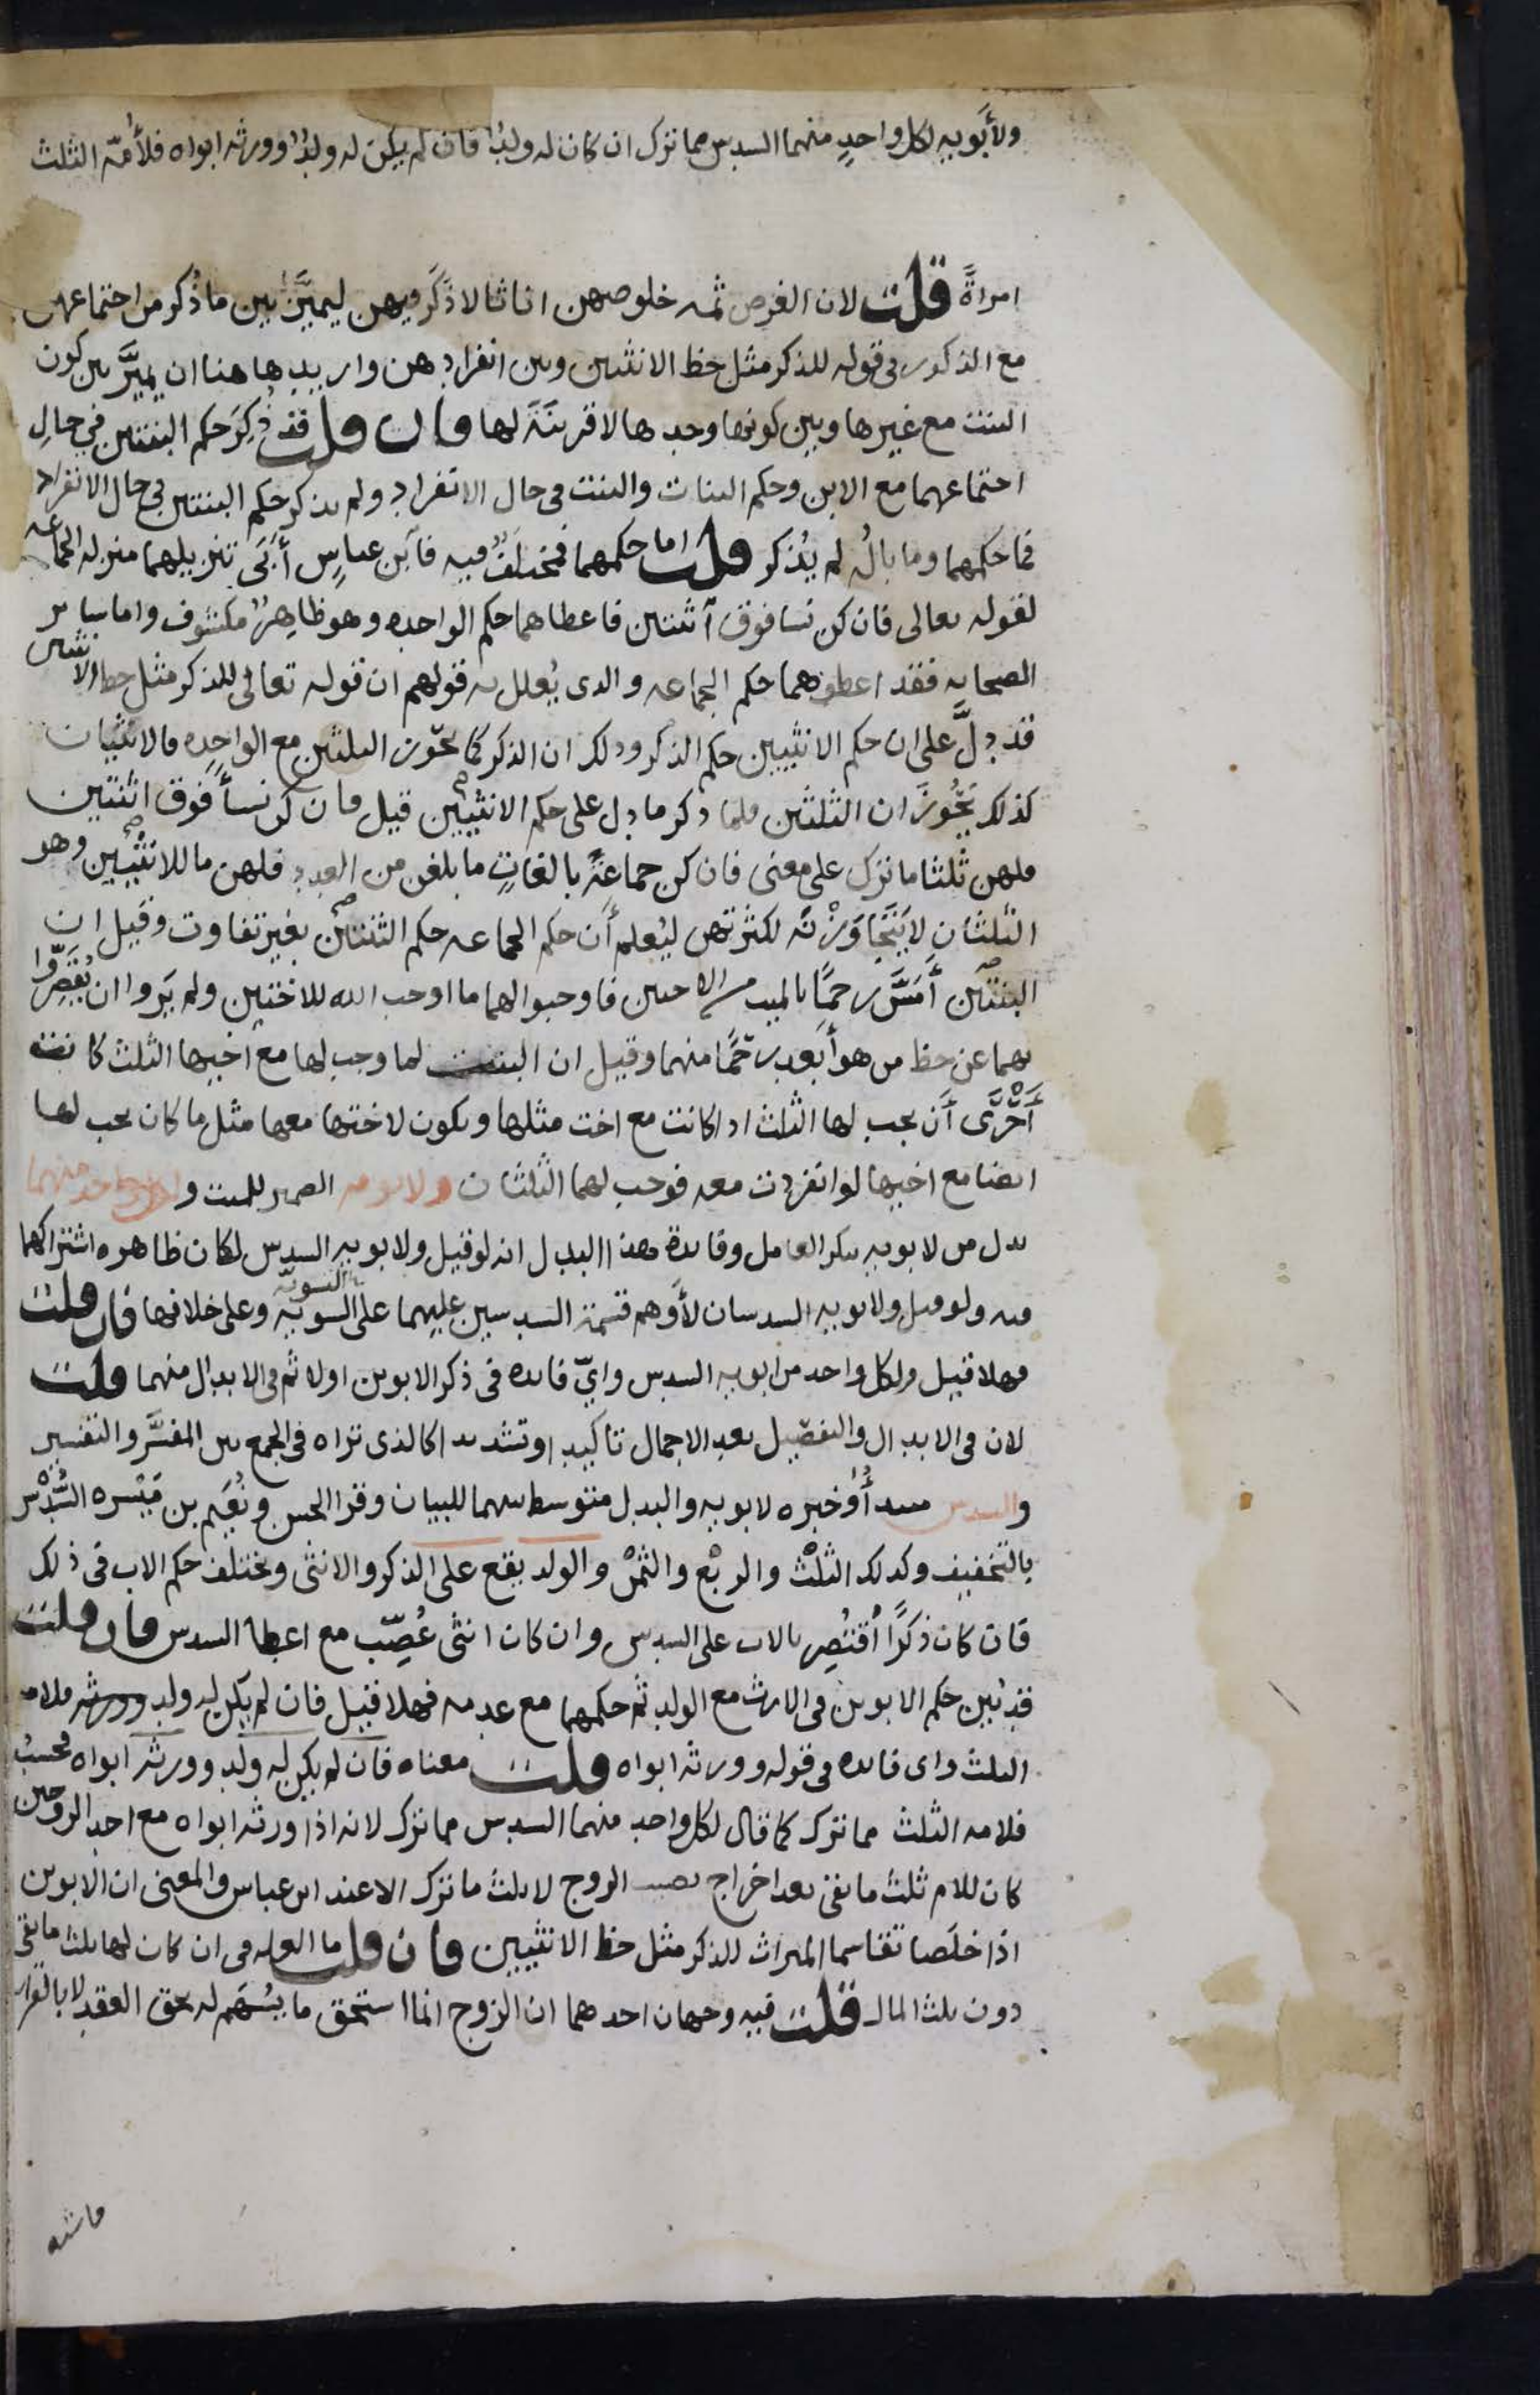 ولأبويه لكل واحد منهما السدس مما ترك ان كان له ولد فان لم يكن له ولد وورثه ابواه فلأمه الثلث
امراة قلت لان الغرض ثمه خلوصهن اناثا لا ذكر فيهن ليميز بين ما ذكر من اجتماعهن
مع الذكور في قوله للذكر مثل حظ الانثيين وبين انفرادهن واريد هاهنا ان يميز بين كون
البنت مع غيرها وبين كونها وحدها لا قرينة لها فان قلت قد ذكر حكم البنتين في حال
اجتماعهما مع الابن وحكم البنات والبنت في حال الانفراد ولم يذكر حكم البنتين في حال الانفراد
فما حكمهما وما باله لم يذكر قلت اما حكمهما فمختلف فيه فابن عباس أبى تنزيلهما منزله الجماعه
لقوله تعالى فان كن نسا فوق اثنتين فاعطاهما حكم الواحده وهو ظاهر مكشوف واما ساير
الصحابه فقد اعطوهما حكم الجماعه والدى يعلل به قولهم ان قوله تعالى للذكر مثل حظ الانثيين
قد دل على ان حكم الانثيين حكم الذكر ودلك ان الذكر كما يحوز الثلثين مع الواحده فالانثيان
كذلك يحوزان الثلثين فلما ذكر ما دل على حكم الانثيين قيل فان كن نسأ فوق اثنتين
فلهن ثلثا ما ترك على معنى فان كن جماعة بالغات ما بلغن من العدد فلهن ما للانثيين وهو
الثلثان لا يتجاوزنه لكثرتهن ليعلم أن حكم الجماعه حكم الثنتين بغير تفاوت وقيل ان
البنتين أمس رحما بالميت من الاختين فاوجبوا لهما ما اوجب الله للاختين ولم يروا ان يقصروا
بهما عن حظ من هو أبعد رحما منهما وقيل ان البنت لما وجب لها مع اخيها الثلث كانت
أحرى أن يجب لها الثلث اذا كانت مع اخت مثلها ويكون لاختها معها مثل ما كان يجب لها
ايضا مع اخيها لو انفردت معه فوجب لهما الثلثان ولابويه الضمير للميت و لكل واحد منهما
بدل من لابويه بتكرير العامل وفايدة هذا البدل انه لو قيل ولابويه السدس لكان ظاهره اشتراكهما
فيه ولو قيل ولابويه السدسان لأوهم قسمة السدسين عليهما على السويه التسوية وعلى خلافها فان قلت
فهلا قيل ولكل واحد من ابويه السدس واي فايده في ذكر الابوين اولا ثم في الابدال منهما قلت
لان في الابدال والتفصيل بعد الاجمال تاكيدا وتشديدا كالذى تراه في الجمع بين المفسر والتفسير
والسدس مبتدأ وخبره لابويه والبدل متوسط بينهما للبيان وقرا الحسن ونعيم بن ميسره السدس
بالتخفيف وكدلك الثلث والربع والثمن والولد يقع على الذكر والانثى ويختلف حكم الاب في ذلك
فان كان ذكرا اقتصر بالاب على السدس وان كان انثى عصب مع اعطا السدس فان قلت
قد بين حكم الابوين في الارث مع الولد ثم حكمهما مع عدمه فهلا قيل فان لم يكن له ولد وورثه فلامه
الثلث واى فايده في قوله وورثه ابواه قلت معناه فان لم يكن له ولد وورثه ابواه فحسب
فلامه الثلث مما ترك كما قال لكل واحد منهما السدس مما ترك لانه اذا ورثه ابواه مع احد الزوجين
كان للام ثلث ما بقى بعد اخراج نصيب الزوج لا ثلث ما ترك الا عند ابن عباس والمعنى ان الابوين
اذا خلصا تقاسما الميراث للذكر مثل حظ الانثيين فان قلت ما العله في ان كان لها ثلث ما بقى
دون ثلث المال قلت فيه وجهان احدهما ان الزوج انما استحق ما يسهم له بحق العقد لا بالقرابه